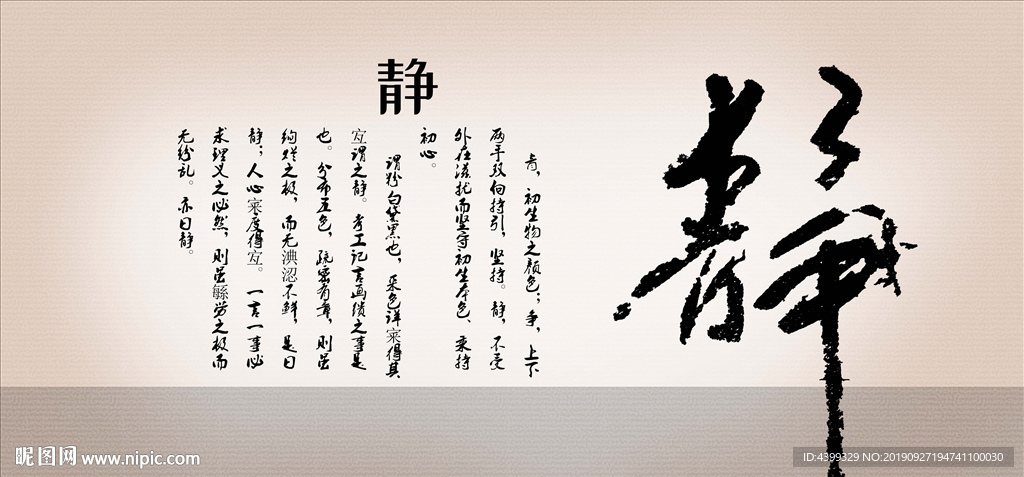 静
静
青，初生物之颜色；争，上下
两手双向持引，坚持。静，不受
外在滋扰而坚守初生本色、秉持
初心。
谓粉白黛黑也，采色详寀得其
宐谓之静。考工记言画缋之事是
也。分布五色，疏密有章，则虽
绚烂之极，而无淟涊不鲜，是曰
静；人心寀度得宐。一言一事必
求理义之必然，则虽緐劳之极而
无纷乱。亦曰静。
昵图网 www.nipic.com
ID:4399329 NO:20190927194741100030